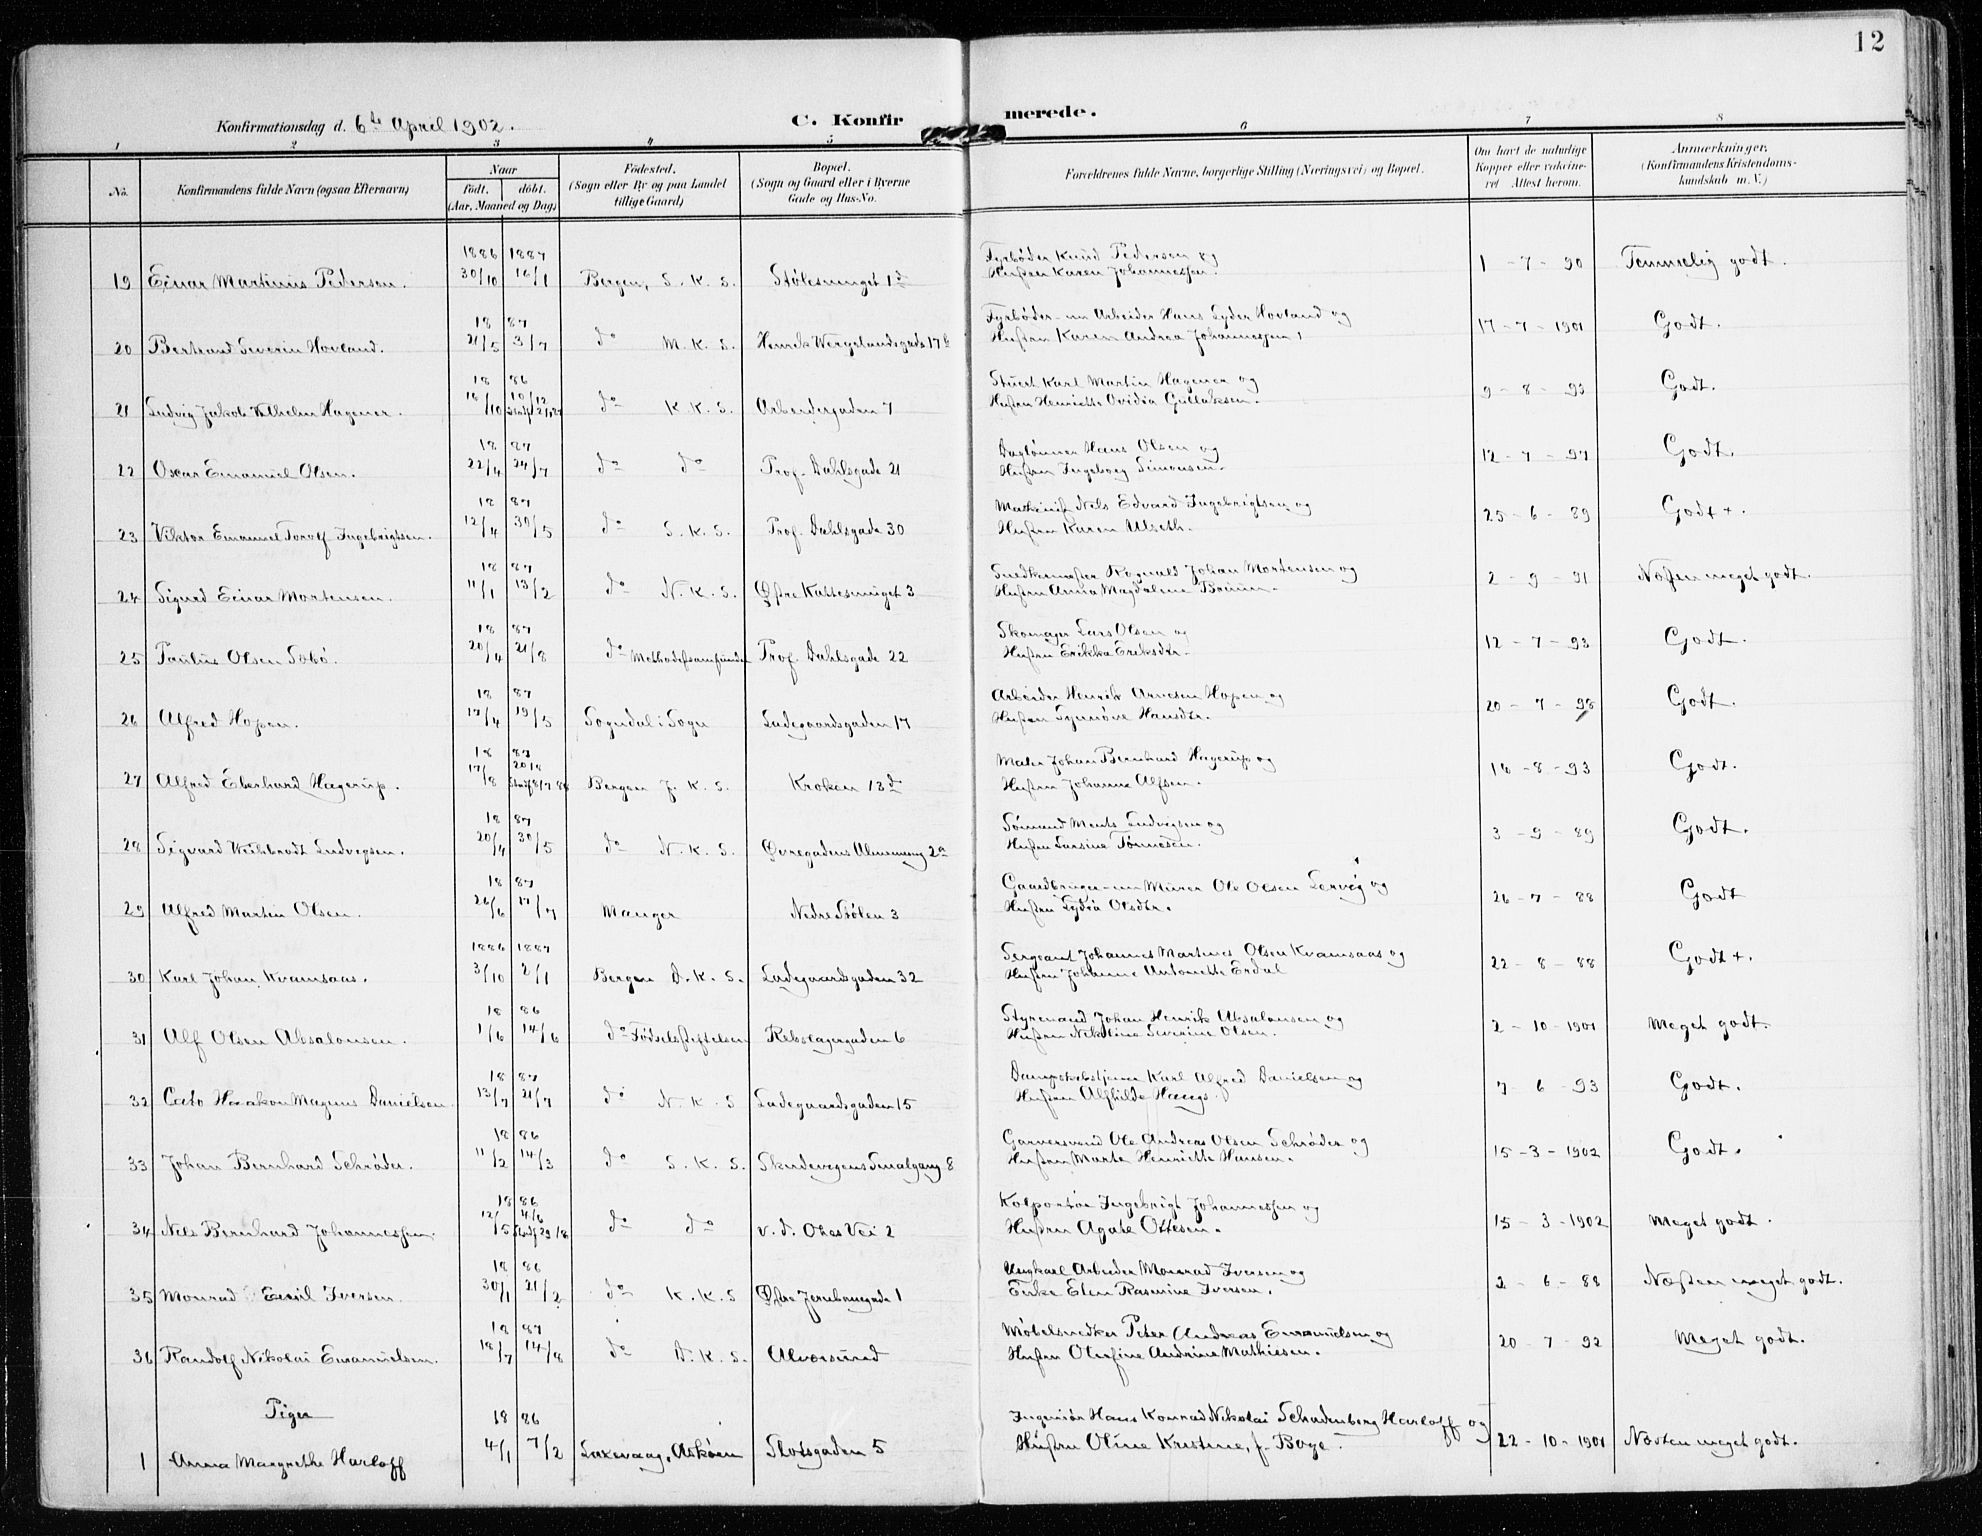 12
Konfirmationsdag d. 6te April 1902.
C. Konfirmerede.
1 2 3 4 5 6 7 8
No. Konfirmandens fulde Navn (ogsaa Efternavn) Naar født. døbt. (Aar, Maaned og Dag) Fødested. (Sogn eller By og paa Landet tillige Gaard) Bopæl. (Sogn og Gaard eller i Byerne Gade og Hus-No. Forældrenes fulde Navne, borgerlige Stilling (Næringsvei) og Bopæl. Om havt de naturlige Kopper eller vakcineret Attest herom. Anmærkninger. (Konfirmandens Kristendomskundskab m. V.)
1886 1887 Fyrbøder Knud Pedersen og
19 Einar Martinus Pedersen. 30/10 16/1 Bergen, S. K. S. Stølesmuget 1d Hustru Karen Johannessen. 1-7-90 Temmelig godt.
18 87 Fyrbøder Arbeider Hans Lyder Hovland og
20 Bertrand Severin Hovland. 21/5 3/7 do M. K. S. Henrik Wergelandsgade 17b Hustru Karen Andrea Johannessen 17-7-1901 Godt.
18 86 Stuert Karl Martin Hagener og
21 Ludvig Jakob Wilhelm Hagener. 16/10 10/12 do K. K. S. Arbeidergaden 7 Hustru Henriette Ovidia Gullaksen. 9-8-93 Godt.
18 87 Hans Olsen og
22 Oscar Emanuel Olsen. 22/4 24/7 do do Prof. Dahlsgade 21 Hustru Ingeborg Simonsen. 12-7-97 Godt.
18 87 Nels Edvard Ingebrigtsen og
23 Viktor Emanuel Torolf Ingebrigtsen. 12/4 30/5 do S. K. S. Prof. Dahlsgade 30 Hustru Karen Ulseth. 25-6-89 Godt +.
18 87 Snedkermester Rognald Johan Mortensen og
24 Sigurd Einar Mortensen. 11/1 13/2 do N. K. S. Østre Kattesmuget 3 Hustru Anna Magdalene Bruun. 2-9-91 Næsten meget godt.
18 87 Skomager Lars Olsen og
25 Paulus Olsen Sobø. 20/4 21/8 do Methodistsamfundet Prof. Dahlsgade 22 Hustru Erikka Eriksdtr. 12-7-93 Godt.
18 87 Arbeider Henrik Arnesen Hopen og
26 Alfred Hopen. 17/4 19/5 Sogndal i Sogn Ladegaardsgaden 17 Hustru Synnöve Hansdtr. 20-7-98 Godt.
18 87 Maler Johan Bernhard Hagerup og
27 Alfred Eberhard Hagerup. 17/8 Bergen J. K. S. Kroken 13d Hustru Johanne Alfsen. 16-8-93 Godt.
18 87 Sømand Ments Ludvigsen og
28 Sigvard Ludvigsen. 20/4 30/5 do N. K. S. Øvregadens Almenning 2a Hustru Lursine Tønnesen. 3-9-89 Godt.
18 87 Gaardbruger Murer Ole Olsen Lervig og
29 Alfred Martin Olsen. 26/6 17/7 Manger Nedre Stølen 3 Hustru Lydia Olsdtr. 26-7-88 Godt
1886 1887 Sergeant Johannes Martines Olsen Kvamsaas og
30 Karl Johan Kvamsaas. 3/10 2/1 Bergen D. K. S. Ladegaardsgaden 32 Hustru Johanne Antonette Erdal 22-8-88 Godt +.
18 86 Styrmand Johan Henrik Absalonsen og
31 Alf Olsen Absalonsen. 1/6 14/6 do Fødselsstiftelsen Rebslagergaden 6 Hustru Nikoline Severine Olsen. 2-10-1901 Meget godt.
18 87 Karl Alfred Danielsen og
32 Cato Haakon Magnus Danielsen. 13/7 21/7 do N. K. S Ladegaardsgaden 15 Hustru Alfhilde Haugs. 7-6-93 Godt.
18 86 Garversvend Ole Andreas Olsen Schrøder og
33 Johan Bernhard Schrøder. 11/2 14/3 do S. K. S. Skudevigens Smalgang 8 Hustru Marte Henriette Hansen. 15-3-1902 Godt.
18 86 Kolportør Ingebrigt Johannessen og
34 Nels Bernhard Johannessen. 12/5 4/6 do do v. d. Ohes Vei 2 Hustru Agate Ottesen. 15-3-1902 Meget godt.
18 86 Ungkarl Arbeider Monrad Iversen og
35 Monrad Emil Iversen. 30/1 21/2 do K. K. S Østre Jernbanegade 1 Enke Elen Rasmine Iversen. 2-6-88 Næsten meget godt.
18 87 Møbelsnedker Peter Andreas Emanuelsen og
36 Randolf Nikolai Emanuelsen. 18/7 14/8 do D. K. S. Alversund Hustru Olufine Andrine Mathiesen. 20-7-92 Meget godt.
Piger 18 86 Ingeniør Hans Konrad Nikolai Harloff og
1 Anna Margrethe Harloff 4/1 7/2 Laxevaag, Askøen Slotsgaden 5 Hustru Oline Kristine, f. Boge. 22-10-1901 Næsten meget godt.